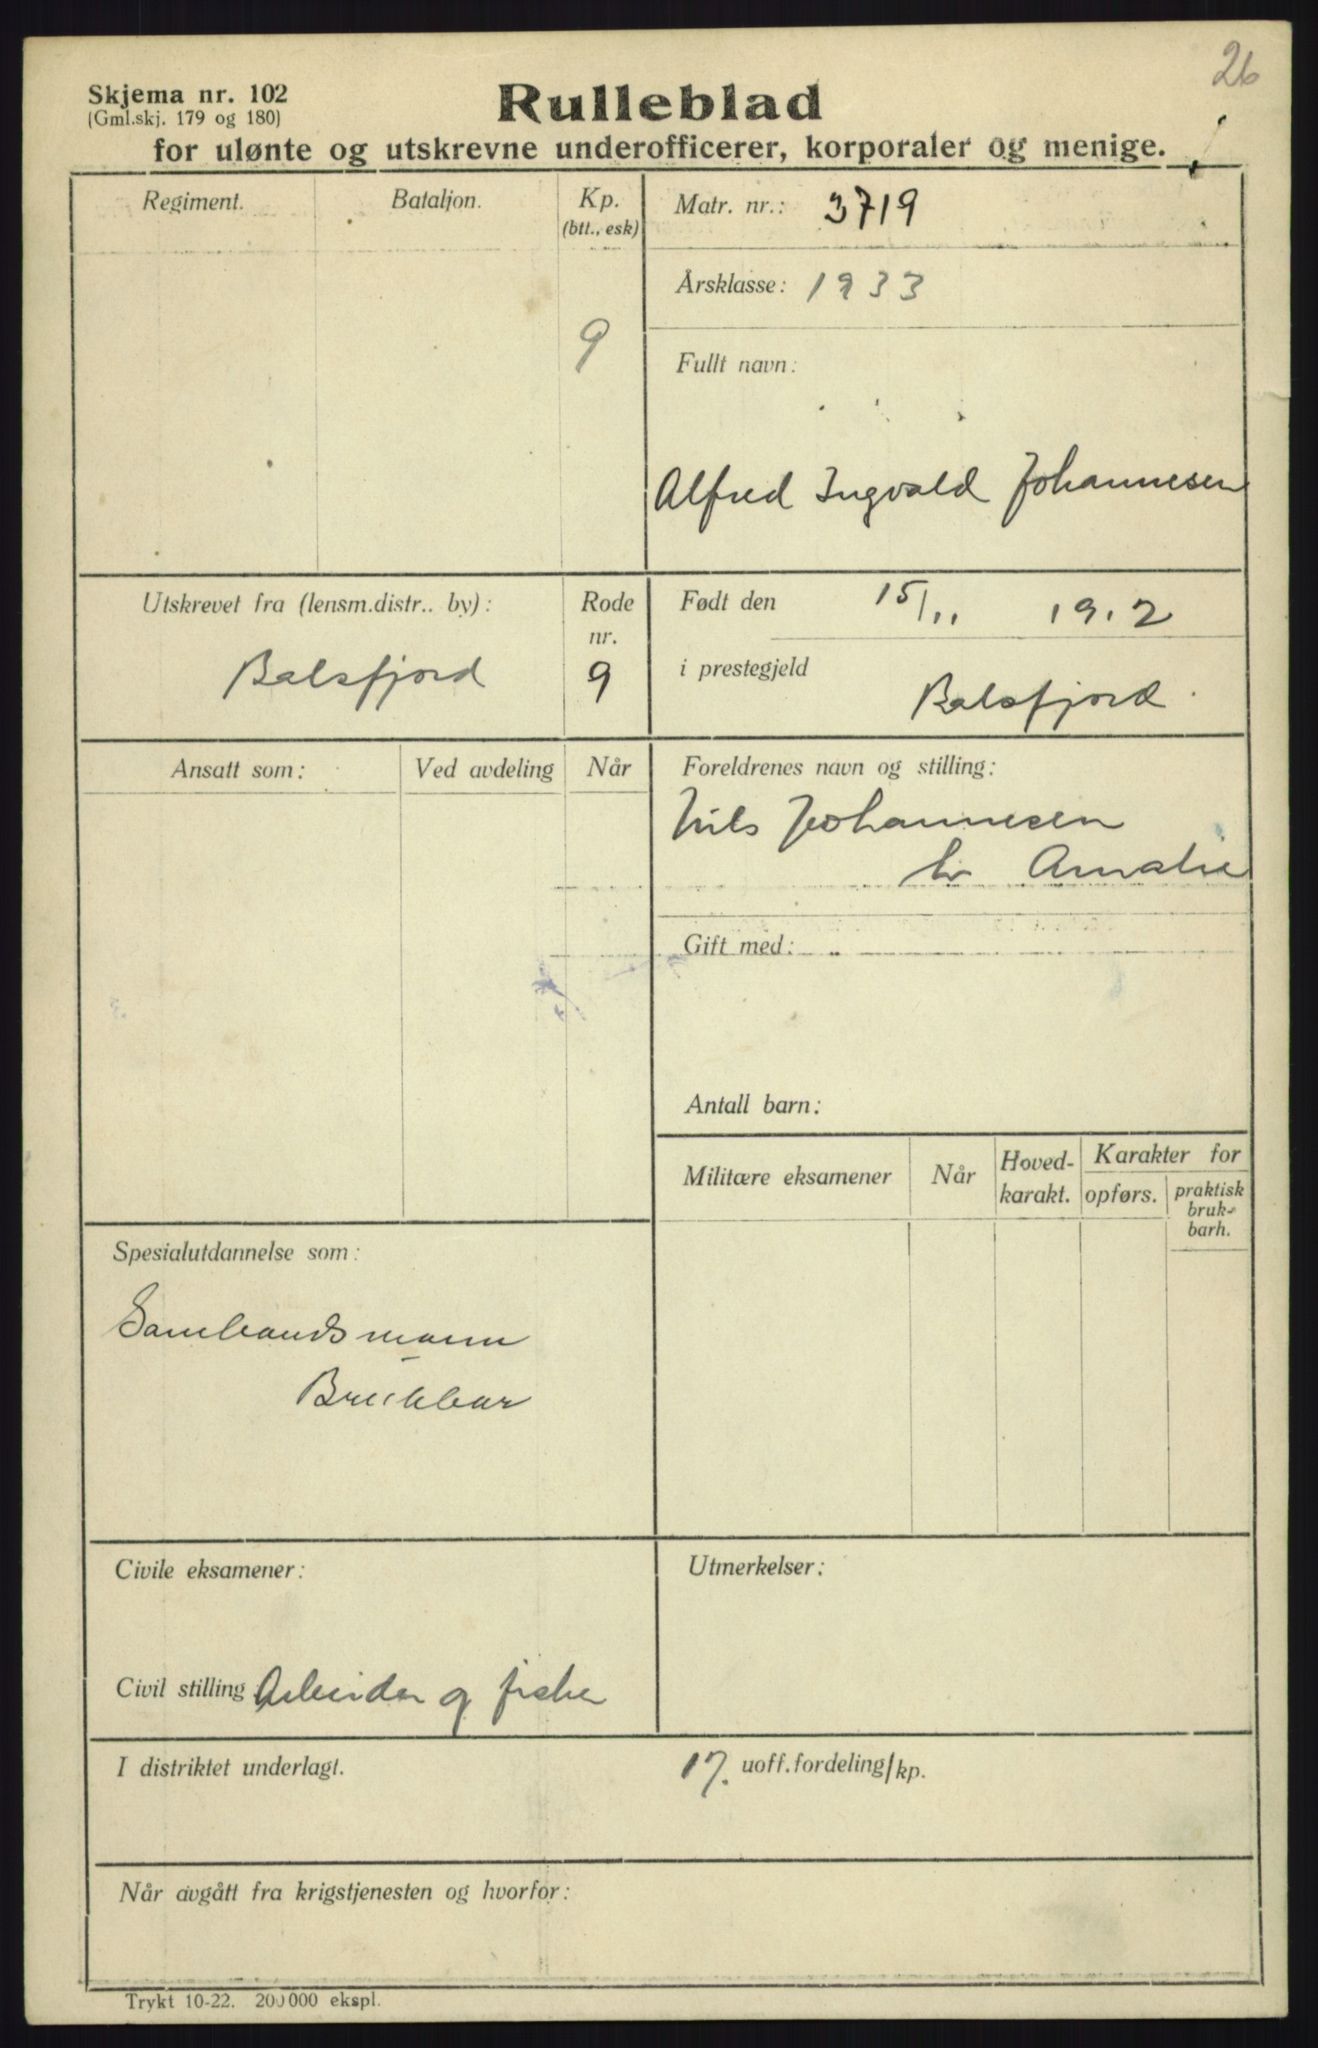 26
Skjema nr. 102
(Gml.skj. 179 og 180)
Rulleblad
for ulønte og utskrevne underofficerer, korporaler og menige.
Regiment.
Bataljon.
Kp.
(btt., esk)
9
Matr. nr.: 3719
Årsklasse: 1933
Fullt navn:
Alfred Ingvald Johannesen
Utskrevet fra (lensm.distr.. by):
Balsfjord
Rode
nr.
9
Født den 15/11 1912
i prestegjeld
Balsfjord
Ansatt som:
Ved avdeling
Når
Foreldrenes navn og stilling:
Nils Johannesen
Amalie
Gift med:
Antall barn:
Militære eksamener
Når
Hoved-
karakt.
Karakter for
opførs.
praktisk
bruk-
barh.
Spesialutdannelse som:
Sambandsmann
Brukbar
Civile eksamener:
Utmerkelser:
Civil stilling Arbeider og fisker
I distriktet underlagt.
17. uoff.fordeling/kp.
Når avgått fra krigstjenesten og hvorfor:
Trykt 10-22. 200 000 ekspl.